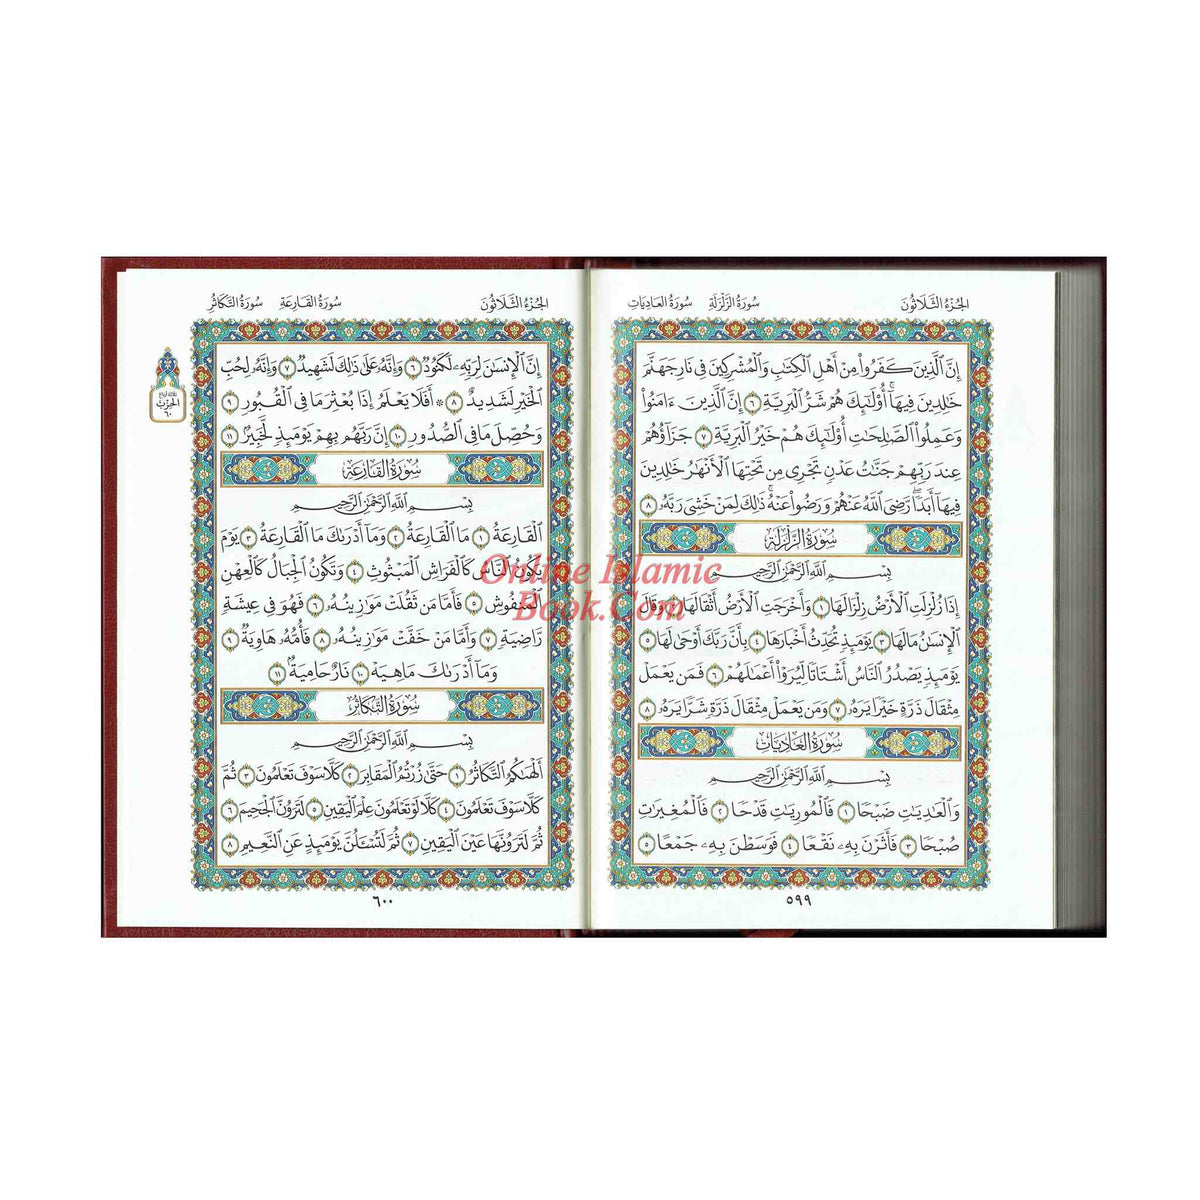 الجُزءُ الثَّلَاثُونَ سُورَةُ الزَّلْزَلَةِ سُورَةُ العَادِيَاتِ
إِنَّ ٱلَّذِينَ كَفَرُوا۟ مِنْ أَهْلِ ٱلْكِتَٰبِ وَٱلْمُشْرِكِينَ فِى نَارِ جَهَنَّمَ
خَٰلِدِينَ فِيهَآ ۚ أُو۟لَٰٓئِكَ هُمْ شَرُّ ٱلْبَرِيَّةِ ٦ إِنَّ ٱلَّذِينَ ءَامَنُوا۟
وَعَمِلُوا۟ ٱلصَّٰلِحَٰتِ أُو۟لَٰٓئِكَ هُمْ خَيْرُ ٱلْبَرِيَّةِ ٧ جَزَآؤُهُمْ
عِندَ رَبِّهِمْ جَنَّٰتُ عَدْنٍ تَجْرِى مِن تَحْتِهَا ٱلْأَنْهَٰرُ خَٰلِدِينَ
فِيهَآ أَبَدًا ۖ رَّضِىَ ٱللَّهُ عَنْهُمْ وَرَضُوا۟ عَنْهُ ۚ ذَٰلِكَ لِمَنْ خَشِىَ رَبَّهُۥ ٨
سُورَةُ الزَّلْزَلَةِ
بِسْمِ ٱللَّهِ ٱلرَّحْمَٰنِ ٱلرَّحِيمِ
إِذَا زُلْزِلَتِ ٱلْأَرْضُ زِلْزَالَهَا ١ وَأَخْرَجَتِ ٱلْأَرْضُ أَثْقَالَهَا ٢ وَقَالَ
ٱلْإِنسَٰنُ مَا لَهَا ٣ يَوْمَئِذٍ تُحَدِّثُ أَخْبَارَهَا ٤ بِأَنَّ رَبَّكَ أَوْحَىٰ لَهَا ٥
يَوْمَئِذٍ يَصْدُرُ ٱلنَّاسُ أَشْتَاتًا لِّيُرَوْا۟ أَعْمَٰلَهُمْ ٦ فَمَن يَعْمَلْ
مِثْقَالَ ذَرَّةٍ خَيْرًا يَرَهُۥ ٧ وَمَن يَعْمَلْ مِثْقَالَ ذَرَّةٍ شَرًّا يَرَهُۥ ٨
سُورَةُ العَادِيَاتِ
بِسْمِ ٱللَّهِ ٱلرَّحْمَٰنِ ٱلرَّحِيمِ
وَٱلْعَٰدِيَٰتِ ضَبْحًا ١ فَٱلْمُورِيَٰتِ قَدْحًا ٢ فَٱلْمُغِيرَٰتِ
صُبْحًا ٣ فَأَثَرْنَ بِهِۦ نَقْعًا ٤ فَوَسَطْنَ بِهِۦ جَمْعًا ٥
٥٩٩
الجُزءُ الثَّلَاثُونَ سُورَةُ القَارِعَةِ سُورَةُ التَّكَاثُرِ
إِنَّ ٱلْإِنسَٰنَ لِرَبِّهِۦ لَكَنُودٌ ٦ وَإِنَّهُۥ عَلَىٰ ذَٰلِكَ لَشَهِيدٌ ٧ وَإِنَّهُۥ لِحُبِّ
ٱلْخَيْرِ لَشَدِيدٌ ٨ ۞ أَفَلَا يَعْلَمُ إِذَا بُعْثِرَ مَا فِى ٱلْقُبُورِ ٩
وَحُصِّلَ مَا فِى ٱلصُّدُورِ ١٠ إِنَّ رَبَّهُم بِهِمْ يَوْمَئِذٍ لَّخَبِيرٌۢ ١١
الحِزْب
٦٠
سُورَةُ القَارِعَةِ
بِسْمِ ٱللَّهِ ٱلرَّحْمَٰنِ ٱلرَّحِيمِ
ٱلْقَارِعَةُ ١ مَا ٱلْقَارِعَةُ ٢ وَمَآ أَدْرَىٰكَ مَا ٱلْقَارِعَةُ ٣ يَوْمَ
يَكُونُ ٱلنَّاسُ كَٱلْفَرَاشِ ٱلْمَبْثُوثِ ٤ وَتَكُونُ ٱلْجِبَالُ كَٱلْعِهْنِ
ٱلْمَنفُوشِ ٥ فَأَمَّا مَن ثَقُلَتْ مَوَٰزِينُهُۥ ٦ فَهُوَ فِى عِيشَةٍ
رَّاضِيَةٍ ٧ وَأَمَّا مَنْ خَفَّتْ مَوَٰزِينُهُۥ ٨ فَأُمُّهُۥ هَاوِيَةٌ ٩
وَمَآ أَدْرَىٰكَ مَا هِيَهْ ١٠ نَارٌ حَامِيَةٌۢ ١١
سُورَةُ التَّكَاثُرِ
بِسْمِ ٱللَّهِ ٱلرَّحْمَٰنِ ٱلرَّحِيمِ
أَلْهَىٰكُمُ ٱلتَّكَاثُرُ ١ حَتَّىٰ زُرْتُمُ ٱلْمَقَابِرَ ٢ كَلَّا سَوْفَ تَعْلَمُونَ ٣ ثُمَّ
كَلَّا سَوْفَ تَعْلَمُونَ ٤ كَلَّا لَوْ تَعْلَمُونَ عِلْمَ ٱلْيَقِينِ ٥ لَتَرَوُنَّ ٱلْجَحِيمَ ٦
ثُمَّ لَتَرَوُنَّهَا عَيْنَ ٱلْيَقِينِ ٧ ثُمَّ لَتُسْـَٔلُنَّ يَوْمَئِذٍ عَنِ ٱلنَّعِيمِ ٨
٦٠٠
Online Islamic
Book.Com